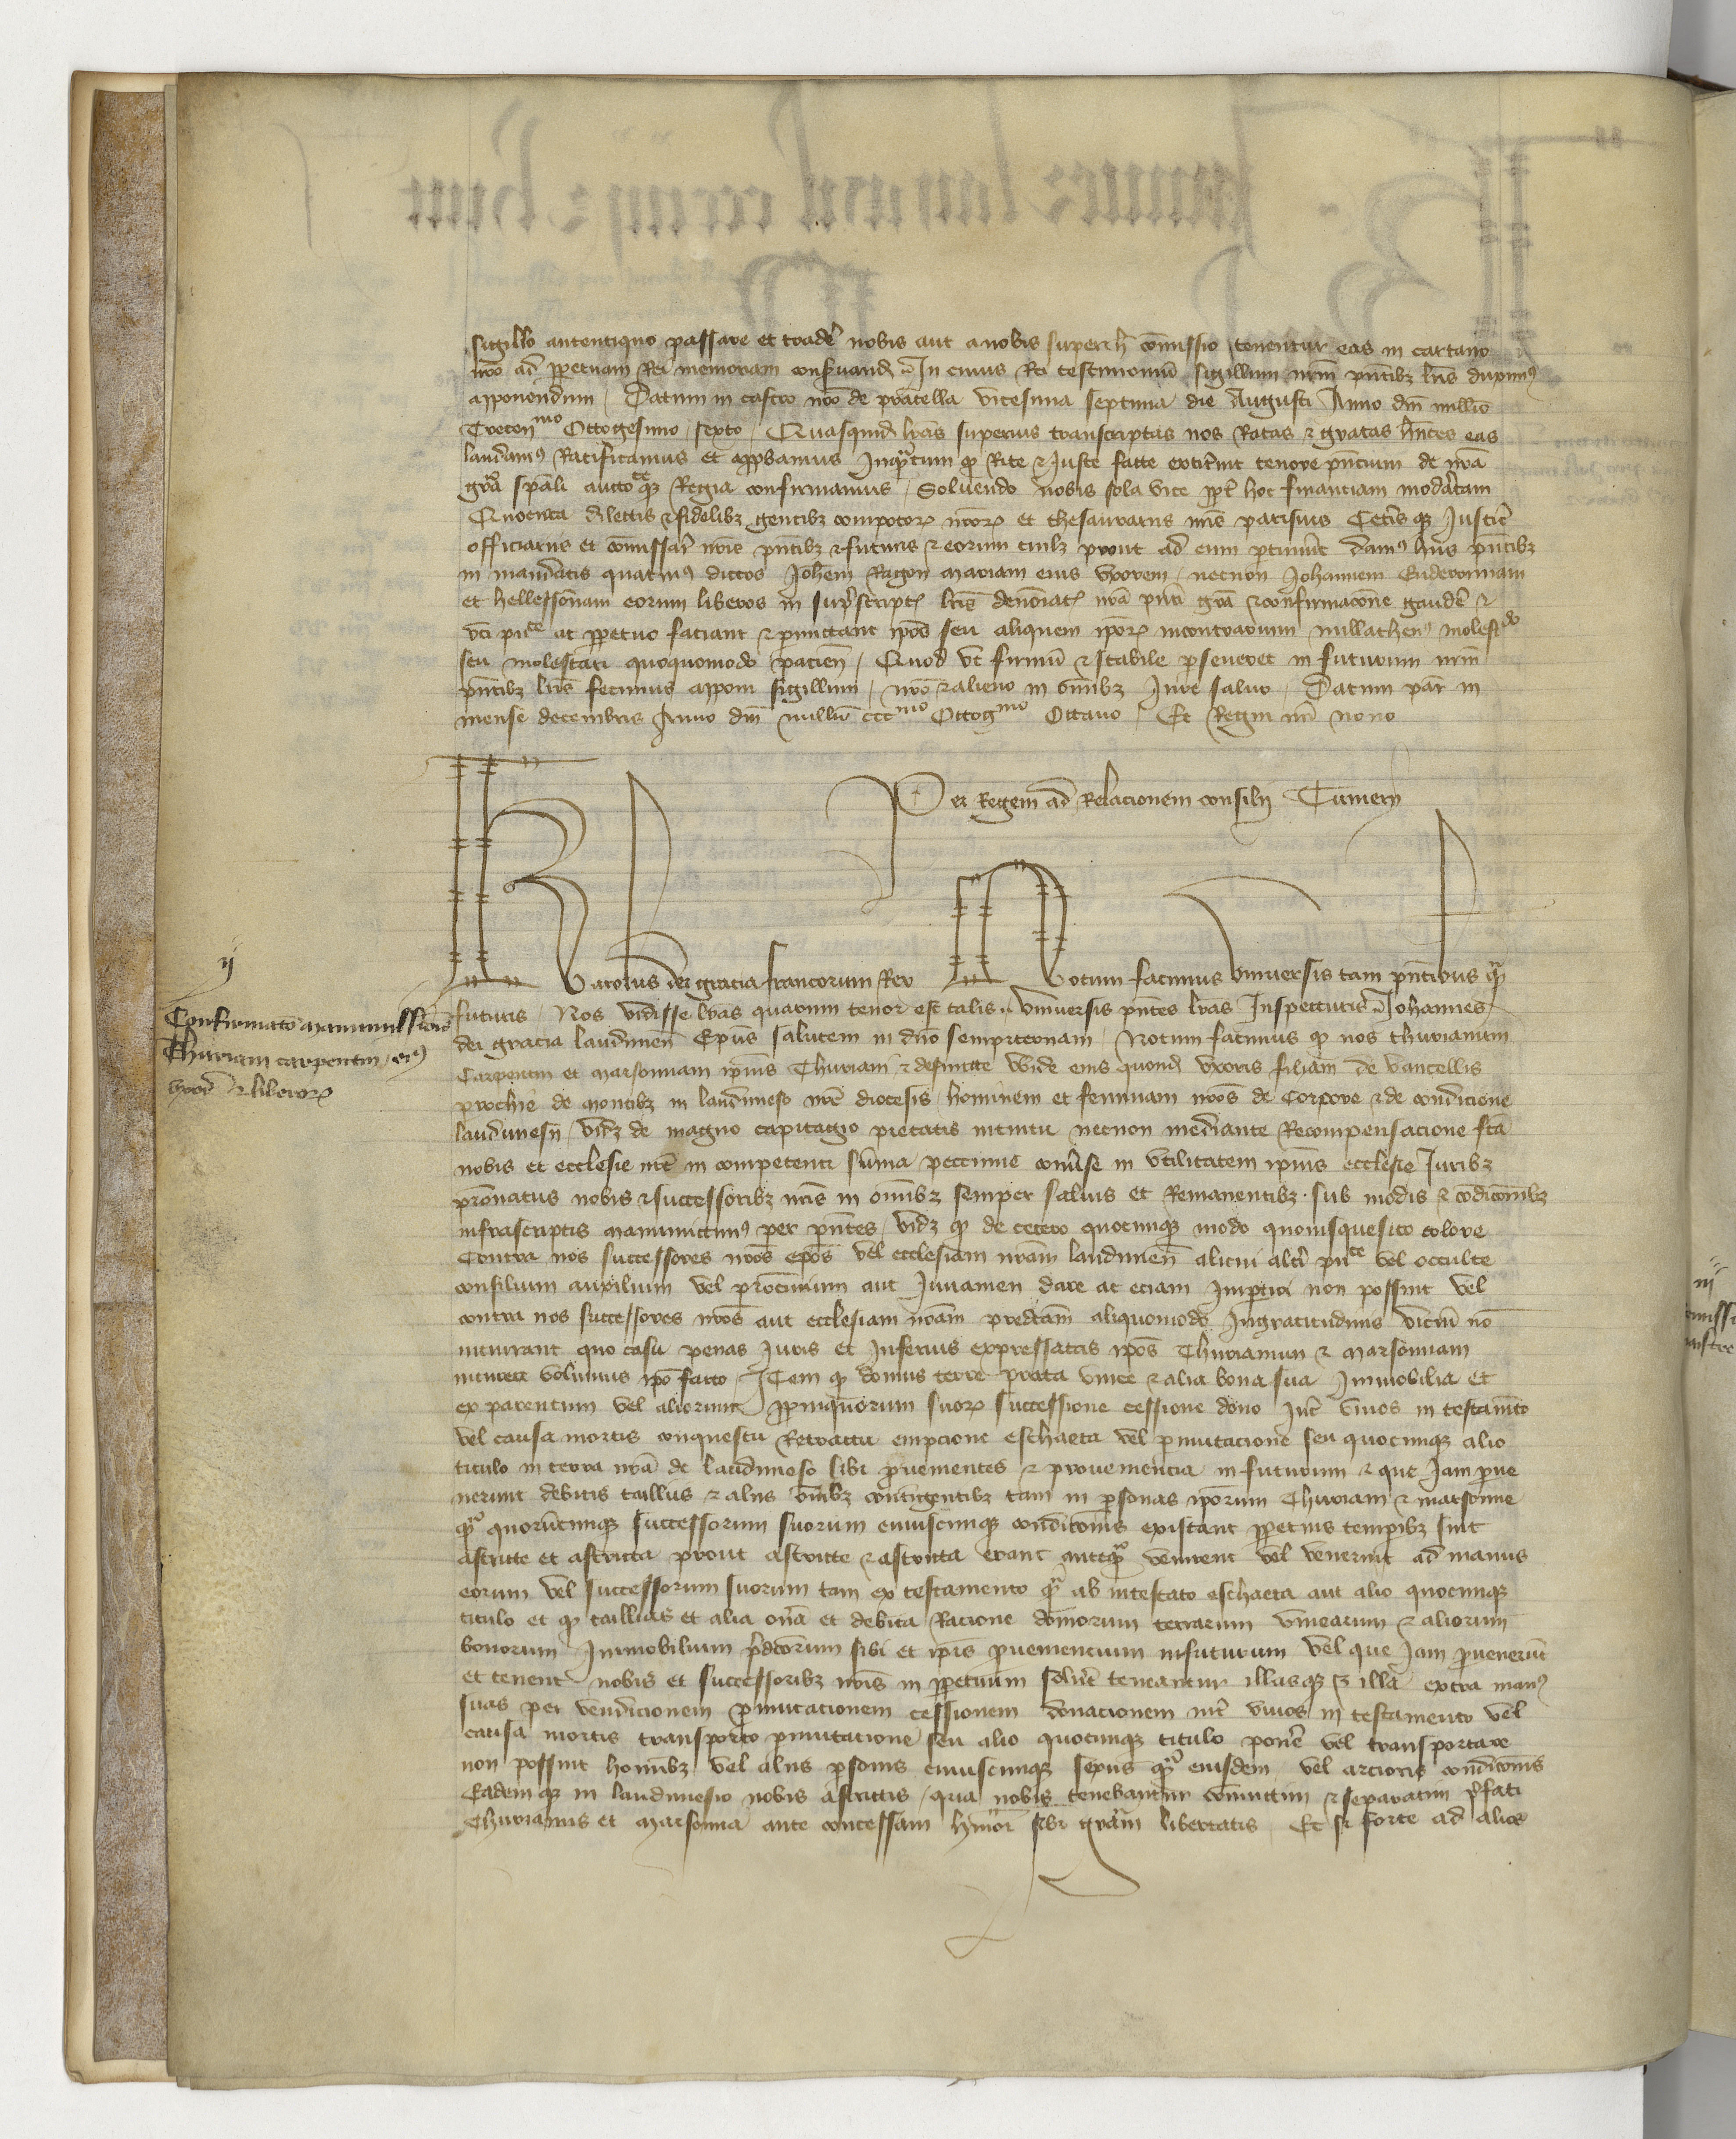 sigillo autentiquo passare et trade nobis aut a nobis super h comissio tenentur eas in cartario
nro ad ppetuam Rei memoriam conservand In cuius Rei testimoniu sigillum nrm pntibz lris duximus
apponendum Datum in castro nro de pratella vicesima septima die Augusti Anno dni millio
Trecenmo Octogesimo sexto Quasquid lras superius transcriptas nos Ratas & gratas hntes eas
laudamus Ratificamus et approbamus Inqutum q Rite & Juste facte extiterint tenore pncium de nra
gra spali auctoteqz Regia confirmamus Solvendo nobis sola vice ppt hoc financiam moderatam
Quocirca dilectis & fidelibz gentibz compotor nror et thesaurariis nris parisius Cetisqz Justic
officiariis et comissar nris pntibz & futuris & eorum cuilibz prout ad eum ptinuit damus hiis pntibz
in mandatis quatinus dictos Johem Ragon mariam eius uxorem necnon Johannem
et hellessonam eorum liberos in suprascript lris denoiat nra pnti gra & confirmacone gaude &
uti pace at ppetuo faciant & pmittant ipos seu aliquem ipor incontrarium nullathenus molestdo
seu molestari quoquomodo pacien Quod ut firmu & stabile perseveret in futurum nrm
pntibz lris fecimus apponi sigillum nro & alieno in omibz Jure salvo Datum par in
mense decembris Anno dni millio cccmo Octogmo Octavo Et Regni nri nono
Per Regem ad Relacionem consilii
Karolus dei gracia francorum Rex Notum facimus universis tam pntibus qm
ij
Confirmato manumissionis
Thuriani carpentin eius
uxor & liberor
futuris Nos vidisse lras quarum tenor est talis Universis pntes lras Inspecturis Johannes
dei gracia laudunen Epus salutem in dno sempiternam Notum facimus q nos thurianum
Carpentin et marsonnam ipius Thuriani & defuncte Wide eius quond uxoris filiam de vancellis
prochie de montibz in laudunesio nre diocesis hominem et feminam nros de Corpore & de condicione
laudunesn vidz de magno capitagio pietatis intuitu necnon mediante Recompensacione fca
nobis et ecclesie nre in competenti suma peccunie converse in utilitatem ipius ecclesie Juribz
pronatus nobis & successoribz nris in omibz semper salvis et Remanentibz sub modis & codicoibz
infrascriptis manumittimus per pntes vidz q de cetero quocunqz modo quovisquesito colore
Contra nos successores nros epos vel ecclesiam nram laudunen alicui alti puce vel occulte
consilium auxilium vel procurium aut Juvamen dare at eciam Impartiri non possint vel
contra nos successores nros aut ecclesiam nram predcam aliquomodo Ingratitudinis viciu no
incurrant quo casu penas Juris et Inferius expressatas ipos Thurianum & marsonnam
incurrere volumus ipo facto Item q domus terre prata vinee & alia bona sua Immobilia et
ex parentum vel aliorum ppinquorum suor successione cessione dono Int vivos in testameto
vel causa mortis conquestu Retractu empcione eschaeta vel pmutacione seu quocunqz alio
titulo in terra nra de laudunesio sibi pvenientes & provenencia in futurum & que Jam pve
nerunt debitis tailliis & aliis oibz contingentibz tam in psonas ipsorum Thuriani & marsonne
qm quorucunqz successorum suorum cuiuscunqz condicionis existant ppetuis tempibz sint
astricte et astricta prout astricte & astricta erant anteqm venirent vel venerint ad manus
eorum vel successorum suorum tam ex testamento qm ab intestato eschaeta aut alio quocunqz
titulo et q taillias et alia oña et debita Racione domorum terrarum vinearum & aliorum
bonorum Immobilium pdcorum sibi et ipis pveniencium infuturum vel que Jam pvenerut
et tenent nobis et successoribz nris in ppetuum solvere teneantur illasqz & illa extra manus
suas per vendicionem pmutacionem cessionem donacionem int vivos in testamento vel
causa mortis transporto pmutacione seu alio quocunqz titulo pone vel transportare
non possint hoibz vel aliis psonis cuiuscunqz sexus qm eiusdem vel arcioris condicionis
Eademqz in laudunesio nobis astrictis qua nobis tenebantur coniunctim & separatim pfati
Thurianus et marsonna ante concessam hmoi sibi gram libertatis Et si forte ad alios